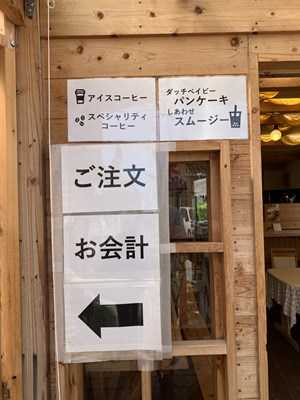 アイスコーヒー
スペシャリティ
コーヒー
ダッチベイビー
パンケーキ
しあわせ
スムージー
ご注文
お会計